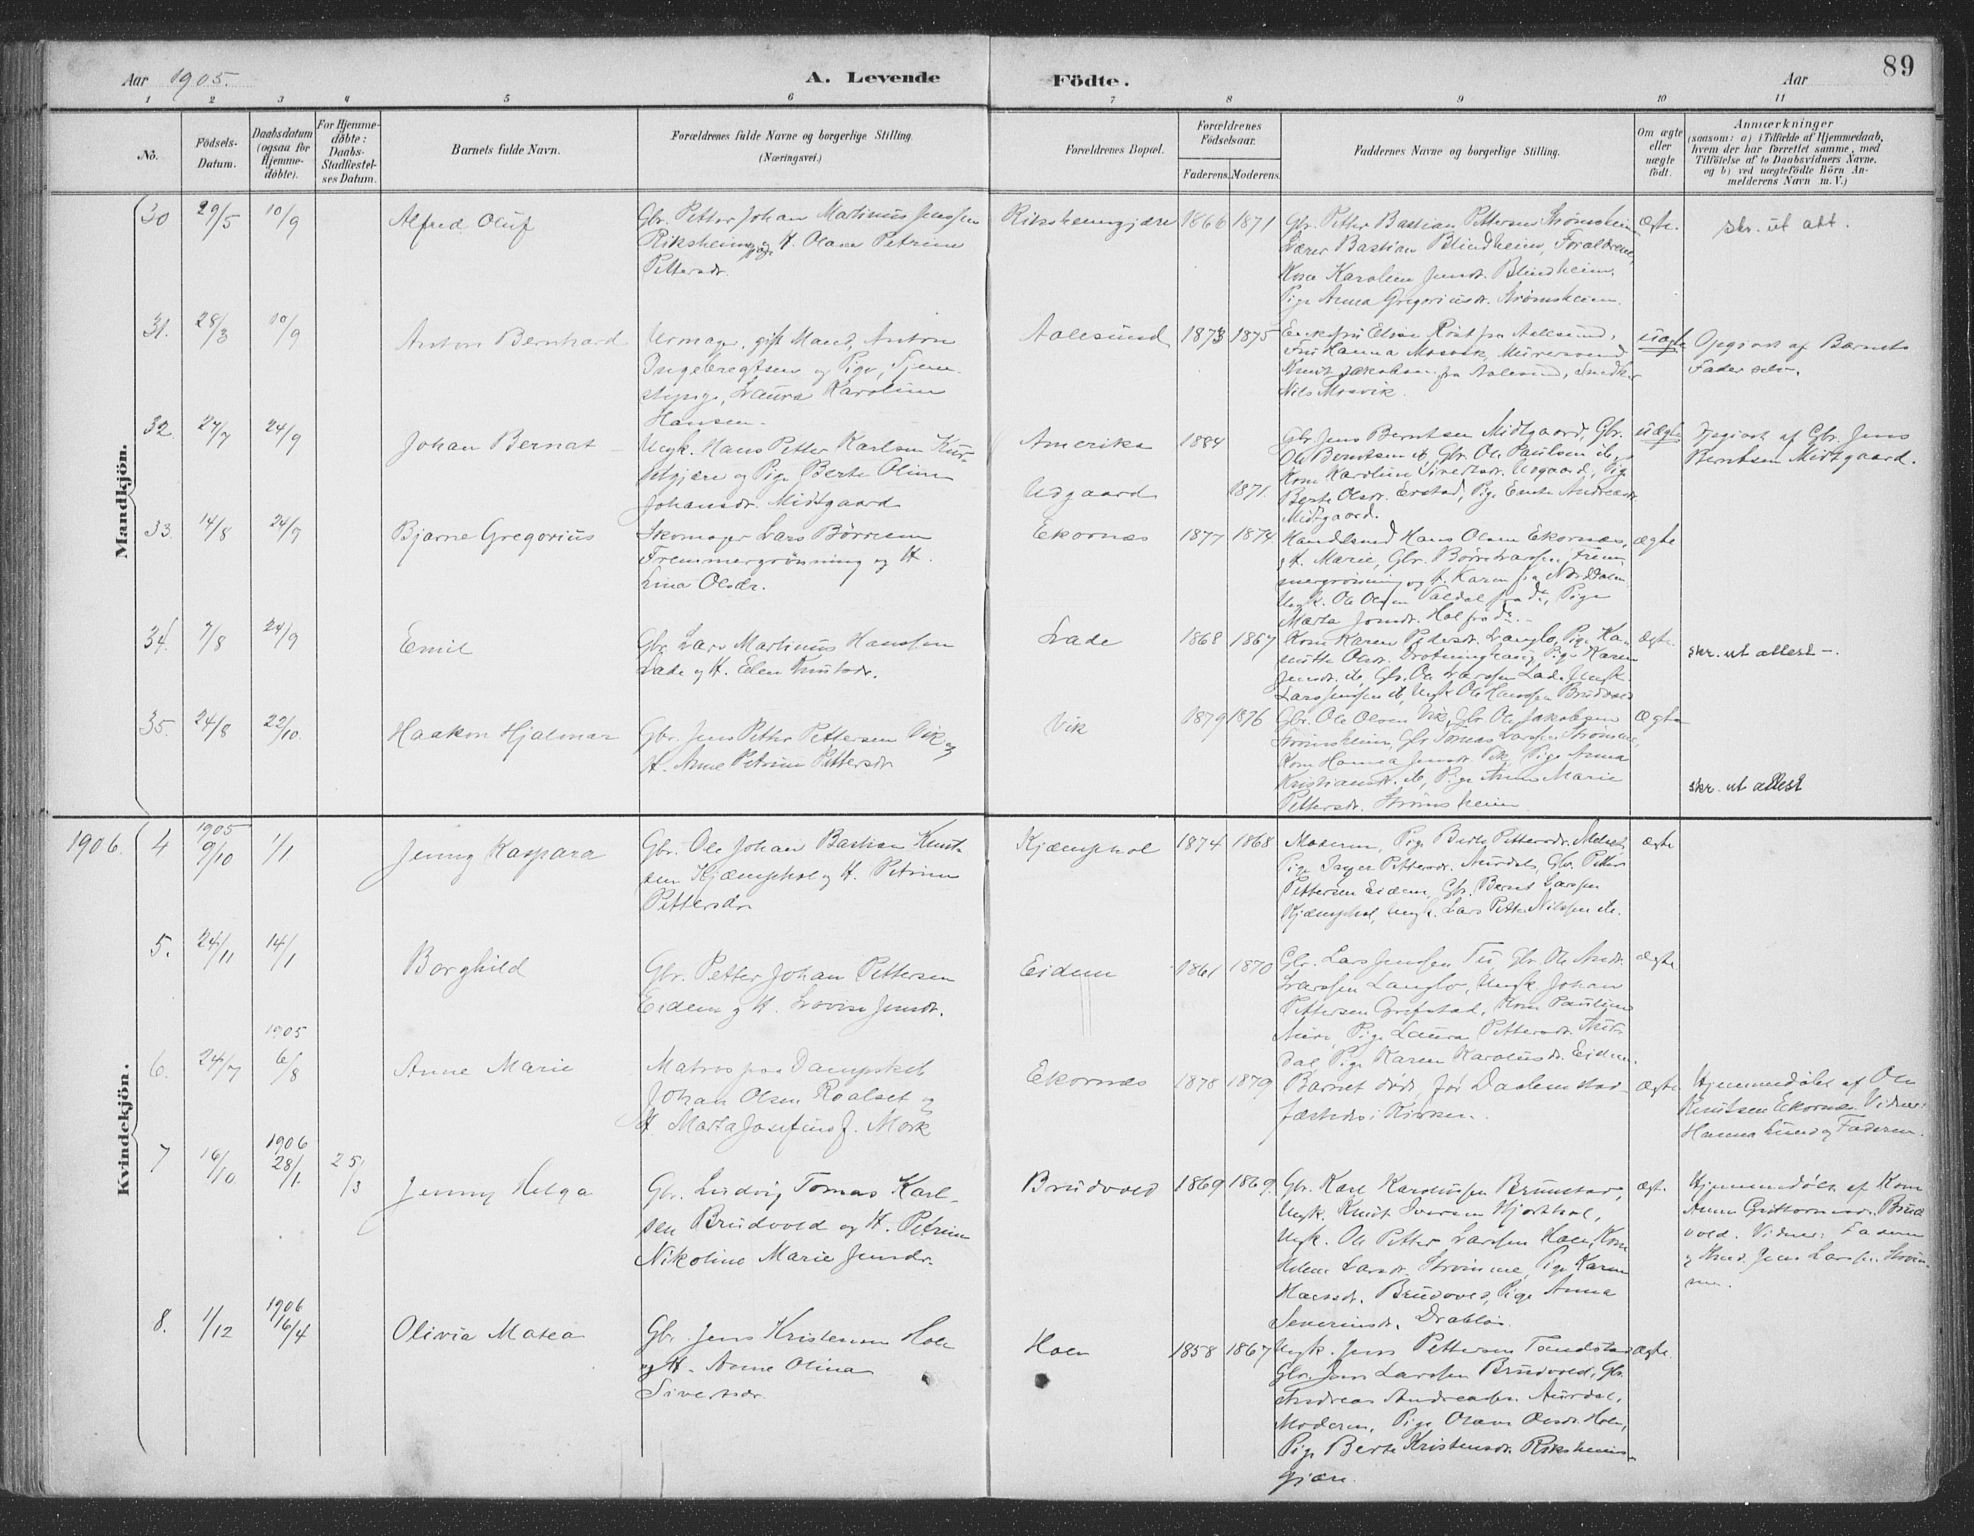 89
Aar 1905.
A. Levende Födte.
Aar
1 2 3 4 5 6 7 8 9 10 11
No.
Födsels-
Datum.
Daabsdatum
(ogsaa for
Hjemme-
döbte).
For Hjemme-
döbte:
Daabs-
Stadfæstel-
ses Datum.
Barnets fulde Navn.
Forældrenes fulde Navne og borgerlige Stilling.
(Næringsvei.)
Forældrenes Bopæl.
Forældrenes
Födselsaar.
Faderens. Moderens.
Faddernes Navne og borgerlige Stilling.
Om ægte
eller
uægte
födt.
Anmærkninger
(saasom: a) i Tilfælde af Hjemmedaab,
hvem der har forrettet samme, med
Tilföielse af to Daabsvidners Navne.
og b) ved uegtefödte Börn An-
melderens Navn m. V.)
Mandkjön.
30 29/5 10/9 Alfred Oluf
Gbr. Petter Johan Martinus Jenssen
Riksheim og H. Olave Petrine
Pettersdr.
Riksheimgjære 1866 1871
Gbr. Petter Bastian Pettersen Strømsheim
Lærer Bastian Blindheim, Forældrene,
Kone Karoline Jensdr. Blindheim,
Pige Anna Gregoriusdr. Strømsheim.
ægte.
skr. ut att.
31. 28/3 10/9 Anton Bernhard
Urmager, gift Mand, Anton
Ingebregtsen og Pige, Tjene-
stepige, Laura Karoline
Hansen.
Aalesund 1873 1875
Fru Hanna Mosvik, Murersvend
Knut Jakobsen fra Aalesund, Snedker
Nils Mosvik.
uægte
Opgivet af Barnets
Fader selv.
32. 27/7 24/9 Johan Bernat
Ungk. Hans Petter Karlsen Kur-
setgjære og Pige Berte Oline
Johansdr. Midtgaard
Amerika 1884
Udgaard 1871.
Gbr. Jens Berntsen Midtgaard, Gbr.
Ole Berntsen do, Gbr. Ole Paulsen do,
Kone Karoline Sivertsdr. Uugaard, Pige
Berte Olsdr. Erstad, Pige Emte Andreasdr.
Midtgaard.
uægte
Opgivet af Gbr. Jens
Berntsen Midtgaard.
33. 14/8 24/9 Bjarne Gregorius
Skomager Lars Børresen
Fremmergrønning og H.
Lina Olsdr.
Ekornæs 1877 1874
Handelsmd Hans Olsen Ekornæs,
og H. Marie, Gbr. Børre Larssen Frem-
mergrønning og H. Karen fra Norddalen
Ungk. Ole Olsen Valdal fra do, Pige
Marta Jonsdr. Hol fra do.
ægte
34. 7/8 24/9 Emil
Gbr. Lars Martinus Hanssen
Lade og H. Elen Knutsdr.
Lade 1868 1867
Kone Karen Pedersdr. Langlo, Pige Ka-
nutte Olsdr. Drotninghaug, Pige Karen
Jensdr. do, Gbr. Ole Larssen Lade, Ungk.
Lars Jenssen do, Ungk Ole Hanssen Brudvold
ægte.
skr. ut attest.
35. 24/8 22/10 Haakon Hjalmar
Gbr. Jens Petter Pettersen Vik og
H. Anne Petrine Pettersdr.
Vik 1879 1876
Gbr. Ole Olsen Vik, Gbr. Ole Jakobsen
Strømsheim, Gbr. Tomas Larssen Strømme,
Kone Hanna Jensdr. Vik, Pige Anna
Kristiansdr. do, Pige Anne Marie
Pettersdr. Strømsheim
ægte
skr. ut attest
Kvindekjön.
1906. 4 1905 9/10 1/1 Jenny Kaspara
Gbr. Ole Johan Bastian Knut-
sen Kjæmphol og H. Petrine
Pettersdr.
Kjæmphol 1874 1868
Moderen, Pige Berte Pettersdr. Melset,
Pige Inger Pettersdr. Aurdal, Gbr. Petter
Pettersen Eidem, Gbr. Bernt Larssen
Kjæmphol, Ungk. Lars Petter Nilssen do.
ægte
5. 24/11 14/1 Borghild
Gbr. Petter Johan Pettersen
Eidem og H. Lovise Jensdr.
Eidem 1861 1870
Gbr. Lars Jenssen Tu, Gbr. Ole Andr.
Larssen Langlo, Ungk Johan
Pettersen Grefstad, Kone Pauline
Pige Laura Pettersdr.
dal, Pige Karen Karolusdr. Eidem.
ægte
6. 24/7 1905 6/8 Anne Marie
Matros paa Dampskib
Johan Olsen Roalset og
H. Marta Josefine f. Mork
Ekornæs 1878 1879
Barnet døde før Daaben stad-
fæstedes i Kirken.
ægte
Hjemmedøbt af Ole
Knutsen Ekornæs. Vidner:
Hanna Lund og Faderen.
7 16/10 1906 28/1 25/3 Jenny Helga
Gbr. Ludvig Tomas Karl-
sen Brudvold og H. Petrine
Nikoline Marie Jensdr.
Brudvold 1869 1869.
Gbr. Karl Karolussen Brunstad,
Ungk. Knut Iversen Hjorthol,
Ungk. Ole Petter Larssen Hole, Kone
Helene Larsdr. Strømme, Pige Karen
Hansdr. Brudvold, Pige Anna
Severinsdr. Drabløs.
ægte.
Hjemmedøbt af Kone
Anne Brud-
vold. Vidner: Faderen
og Jens Larssen Strøm-
me.
8. 1/12 1906 16/4 Olivia Matea
Gbr. Jens Kristensen Hole
og H. Anne Olina
Sivertsdr.
Holen 1858 1867
Ungk. Jens Pettersen Tandstad
Gbr. Jens Larssen Brudvold, Gbr.
Andreas Andreassen Aurdal,
Moderen, Pige Olave Olsdr. Hole,
Pige Berte Kristensdr. Riksheim-
gjære.
ægte.